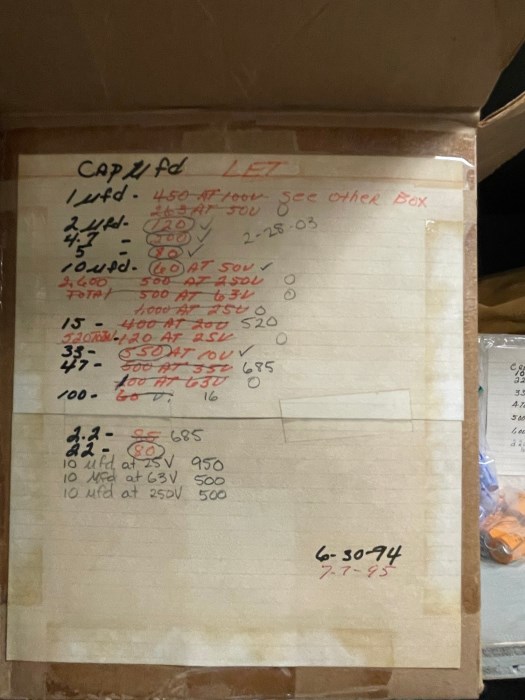 CAP µfd LET
1 µfd - 450 AT 100V - See other Box
263 AT 50V 0
2 µfd - 120 ✓
4.7 - 500 ✓ 2-28-03
5 - 80 ✓
10 µfd - 60 AT 50V ✓
2,600 500 AT 250V 0
TOTAL 500 AT 63V 0
1,000 AT 25V 0
15 - 400 AT 20V 520
520 TOTAL - 120 AT 25V 0
33 - 550 AT 10V ✓
47 - 500 AT 35V 685
100 AT 63V 0
100 - 60 V. 16
2.2 - 85 685
22 - 80
10 µfd at 25V 950
10 Mfd at 63V 500
10 Mfd at 250V 500
6-30-94
7-7-95